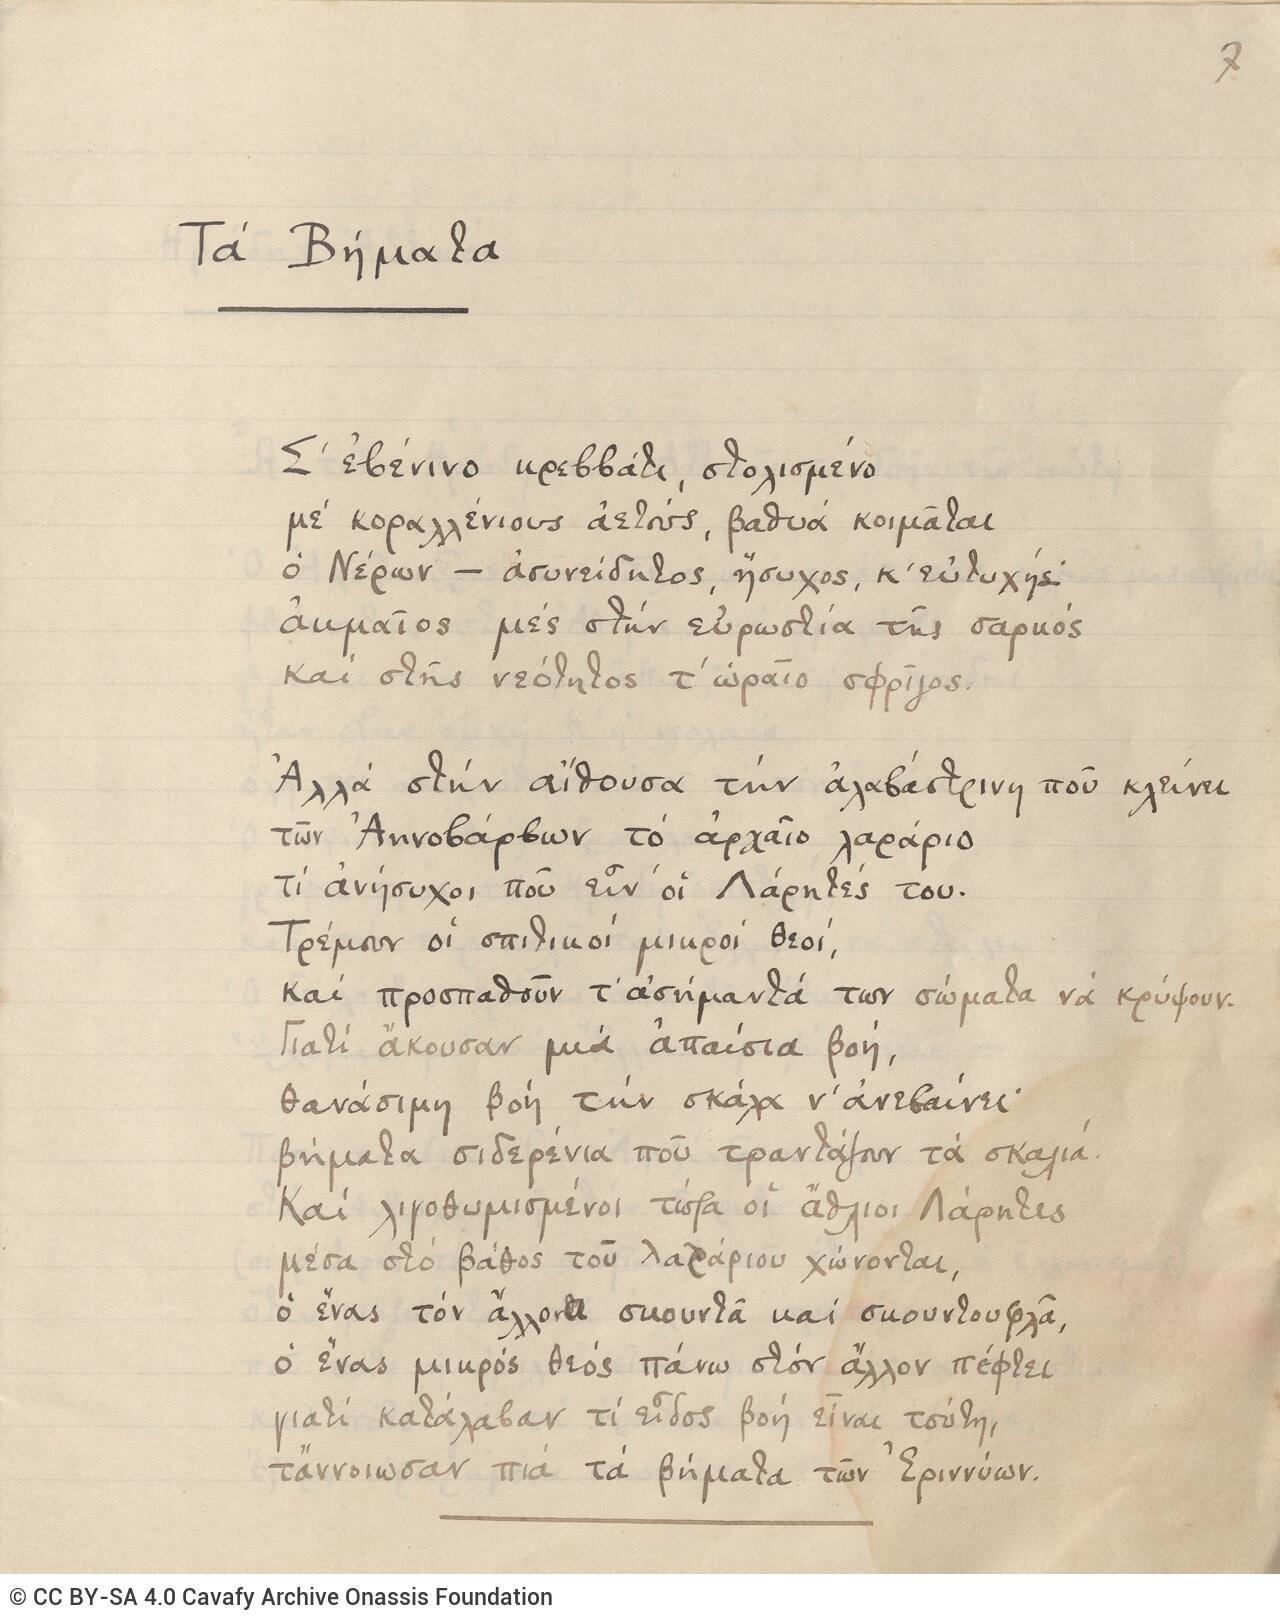 7
Τά Βήματα
Σ' ἐβένινο κρεββάτι, στολισμένο
μέ κοραλλένιους ἀετούς, βαθυά κοιμᾶται
ὁ Νέρων — ἀσυνείδητος, ἥσυχος, κ' εὐτυχής·
ἀκμαῖος μές στήν εὐρωστία τῆς σαρκός
καί στῆς νεότητος τ' ὡραῖο σφρῖγος.
Ἀλλά στήν αἴθουσα τήν ἀλαβάστρινη ποῦ κλείνει
τῶν Ἀηνοβάρβων τό ἀρχαῖο λαράριο
τί ἀνήσυχοι ποῦ εἶν' οἱ Λάρητές του.
Τρέμουν οἱ σπιτικοί μικροί θεοί,
καί προσπαθοῦν τ' ἀσήμαντά των σώματα νά κρύψουν.
Γιατί ἄκουσαν μιά ἀπαίσια βοή,
θανάσιμη βοή τήν σκάλα ν' ἀνεβαίνει·
βήματα σιδερένια ποῦ τραντάζουν τά σκαλιά.
Καί λιγοθυμισμένοι τώρα οἱ ἄθλιοι Λάρητες
μέσα στό βάθος τοῦ λαράριου χώνονται,
ὁ ἕνας τόν ἄλλονα σκουντᾶ καί σκουντουφλᾶ,
ὁ ἕνας μικρός θεός πάνω στόν ἄλλον πέφτει
γιατί κατάλαβαν τί εἶδος βοή εἶναι τούτη,
τἄννοιωσαν πιά τά βήματα τῶν Ἐριννύων.
© CC BY-SA 4.0 Cavafy Archive Onassis Foundation